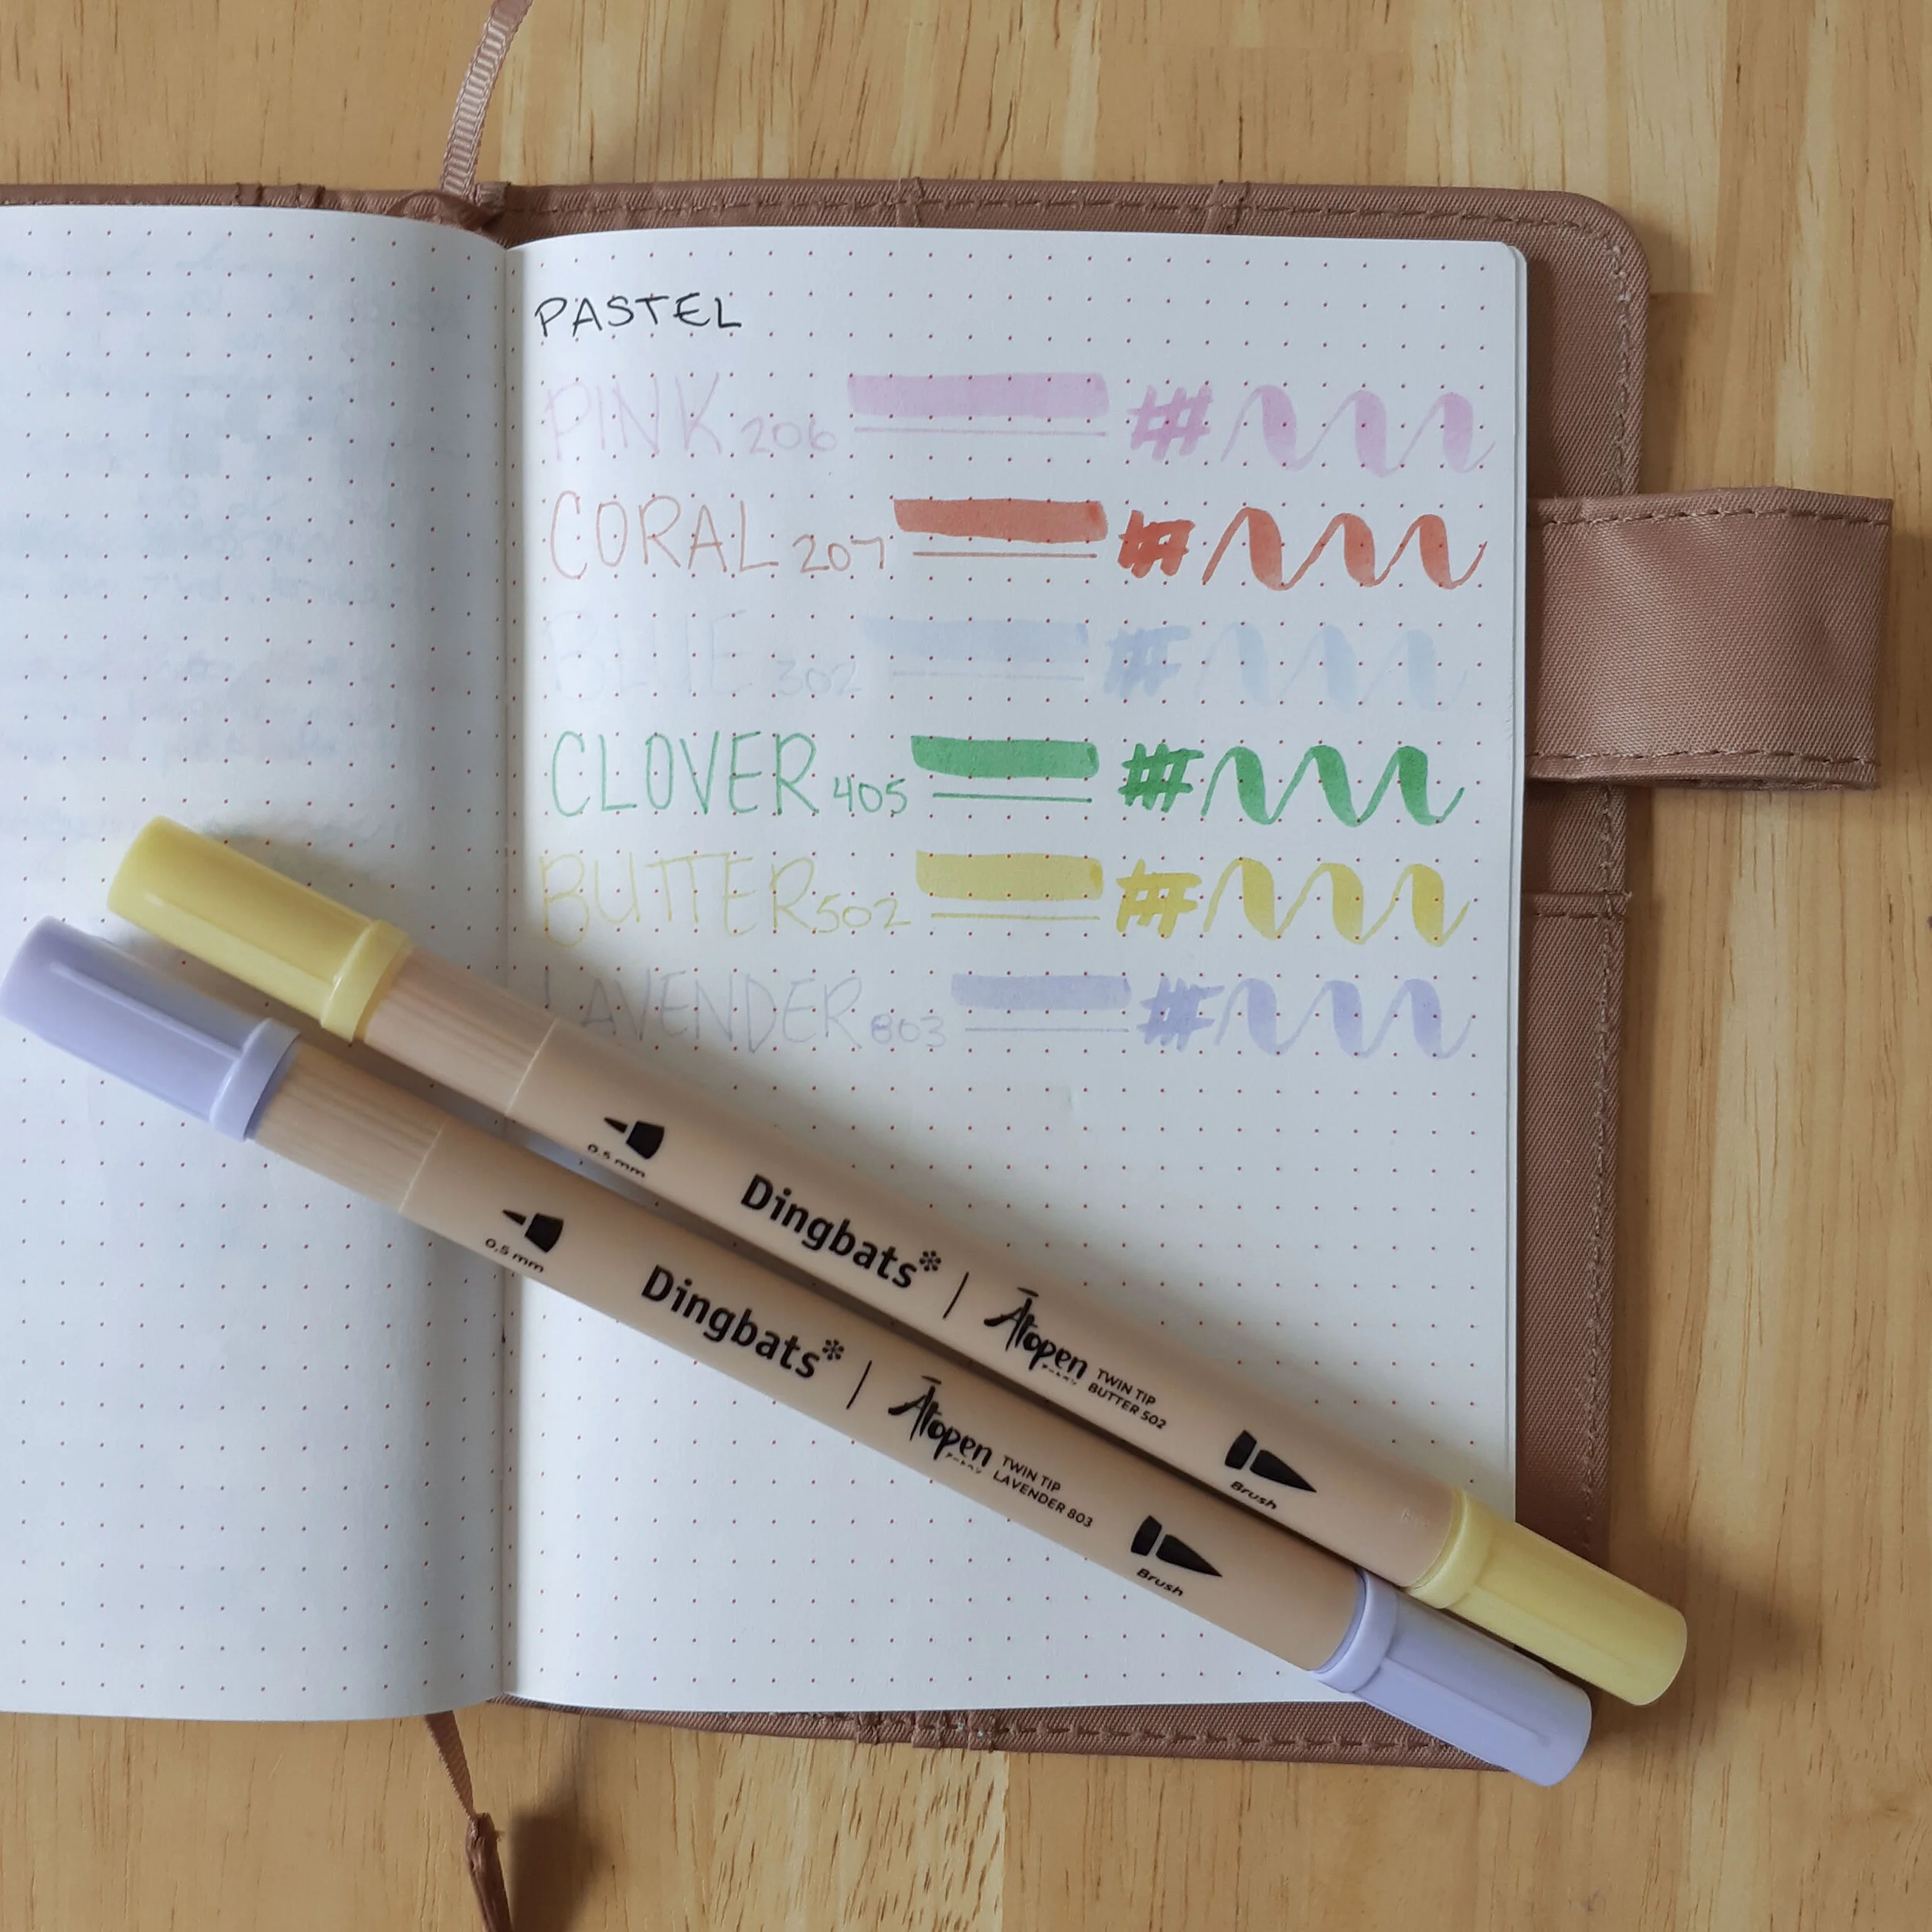 PASTEL
PINK 206
CORAL 207
BLUE 302
CLOVER 405
BUTTER 502
LAVENDER 803
0.5 mm
Dingbats* | Atopen
TWIN TIP
BUTTER 502
Brush
0.5 mm
Dingbats* | Atopen
TWIN TIP
LAVENDER 803
Brush